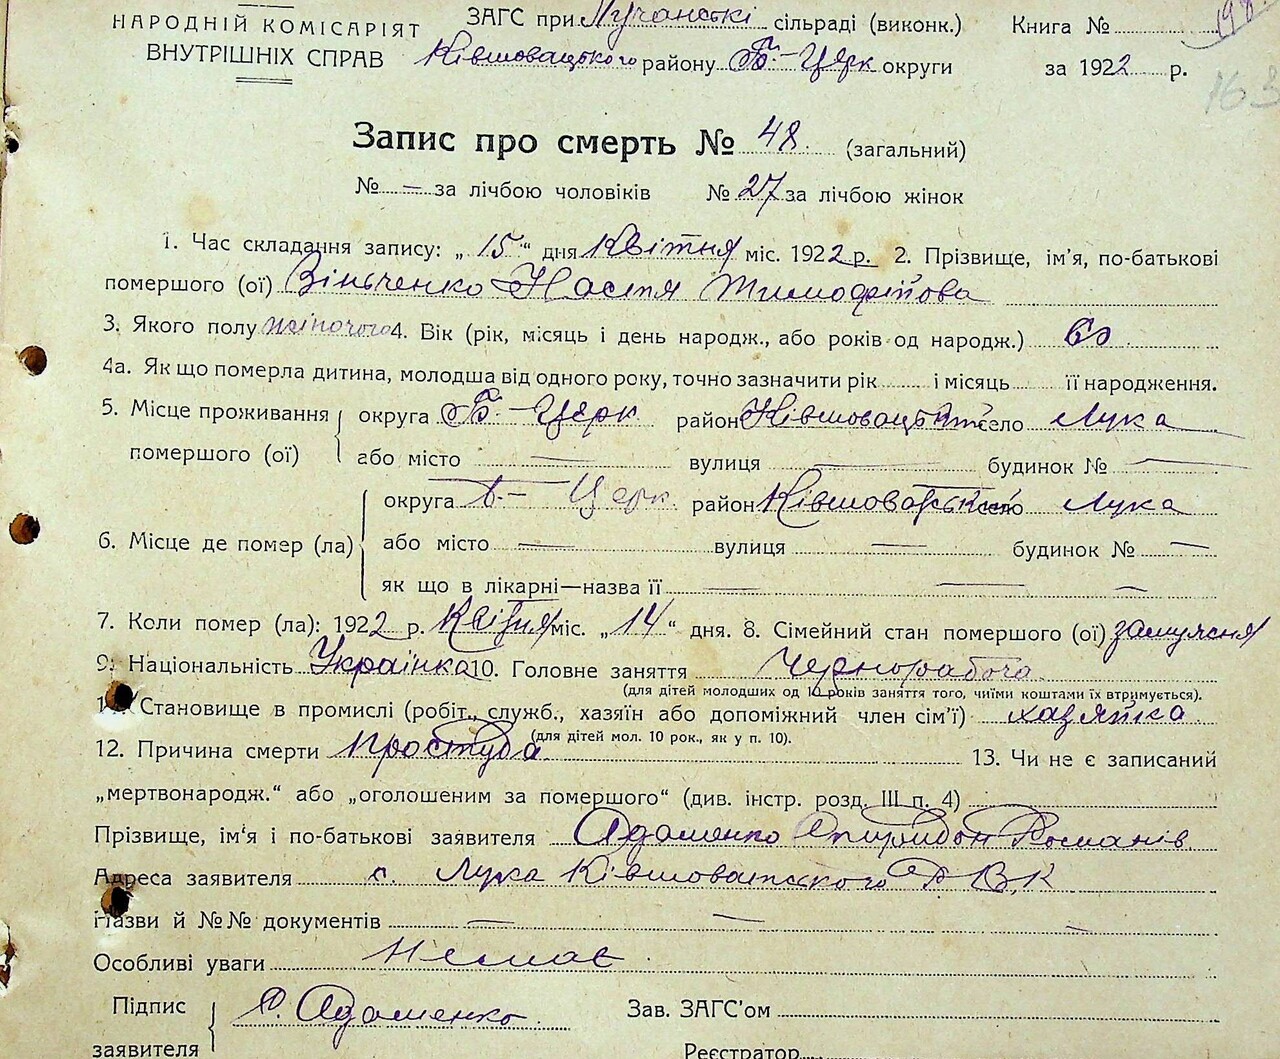 НАРОДНІЙ КОМІСАРІЯТ
ВНУТРІШНІХ СПРАВ
ЗАГС при Лучанські сільраді (виконк.)
Ківшоватського району Б.-Церк округи
Книга №
за 1922 р.
163
Запис про смерть № 48. (загальний)
№ — за лічбою чоловіків № 27 за лічбою жінок
1. Час складання запису: „ 15 “ дня Квітня міс. 1922 р. 2. Прізвище, ім'я, по-батькові
помершого (ої) Вінььченко Настя Тимофійова
3. Якого полу жіночого 4. Вік (рік, місяць і день народж., або років од народж.) 60
4а. Як що померла дитина, молодша від одного року, точно зазначити рік і місяць її народження.
5. Місце проживання помершого (ої) округа Б.-Церк район Ківшоватськ село Лука
або місто — вулиця — будинок № —
6. Місце де помер (ла) округа Б.- Церк район Ківшоватськ село Лука
або місто — вулиця — будинок № —
як що в лікарні—назва її — — —
7. Коли помер (ла): 1922 р. Квітня міс. „ 14 “ дня. 8. Сімейний стан помершого (ої) замужня
9. Національність Українка 10. Головне заняття Чернорабоча
(для дітей молодших од 10 років заняття того, чиїми коштами їх втримується).
11. Становище в промислі (робіт., служб., хазяїн або допоміжний член сім'ї) хазяйка
(для дітей мол. 10 рок., як у п. 10).
12. Причина смерти простуда 13. Чи не є записаний
„мертвонародж.“ або „оголошеним за помершого“ (див. інстр. розд. III п. 4)
Прізвище, ім'я і по-батькові заявителя Адаменко Спиридон Романів
Адреса заявителя с. Лука Ківшоватського Р В.К
Назви й №№ документів — — —
Особливі уваги Немає
Підпис заявителя С. Адаменко
Зав. ЗАГС'ом
Реєстратор